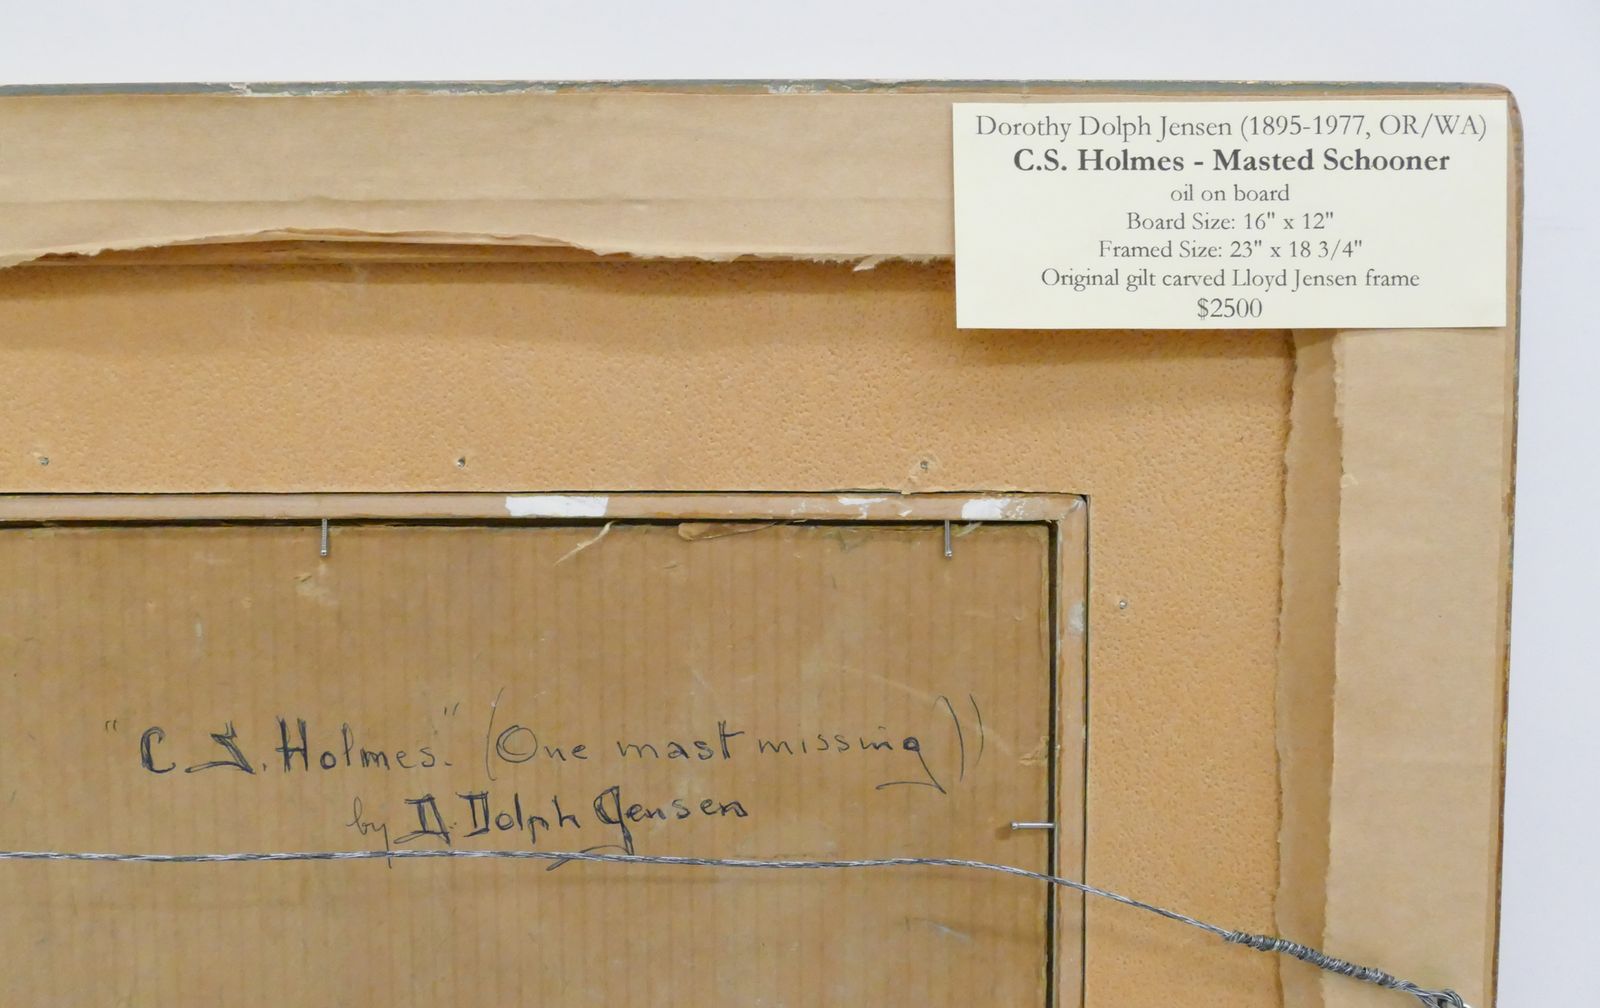 Dorothy Dolph Jensen (1895-1977, OR/WA)
C.S. Holmes - Masted Schooner
oil on board
Board Size: 16" x 12"
Framed Size: 23" x 18 3/4"
Original gilt carved Lloyd Jensen frame
$2500
"C.S. Holmes." (One mast missing))
by D. Dolph Jensen